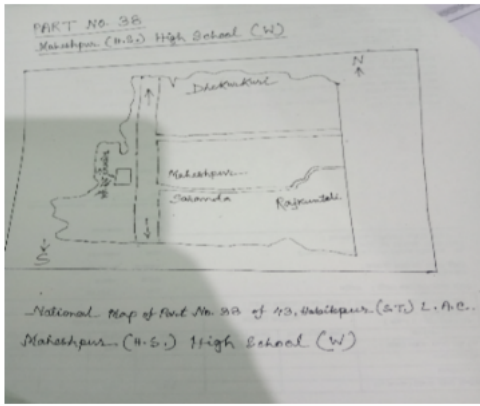 PART NO. 38
Maheshpur (H.S.) High School (W)
N
Dhakurkuri
Maheshpur
Sahamda
Rajkumtoli
S
National Map of Part No. 38 of 43, Habibpur (ST.) L.A.C.
Maheshpur (H.S.) High School (W)